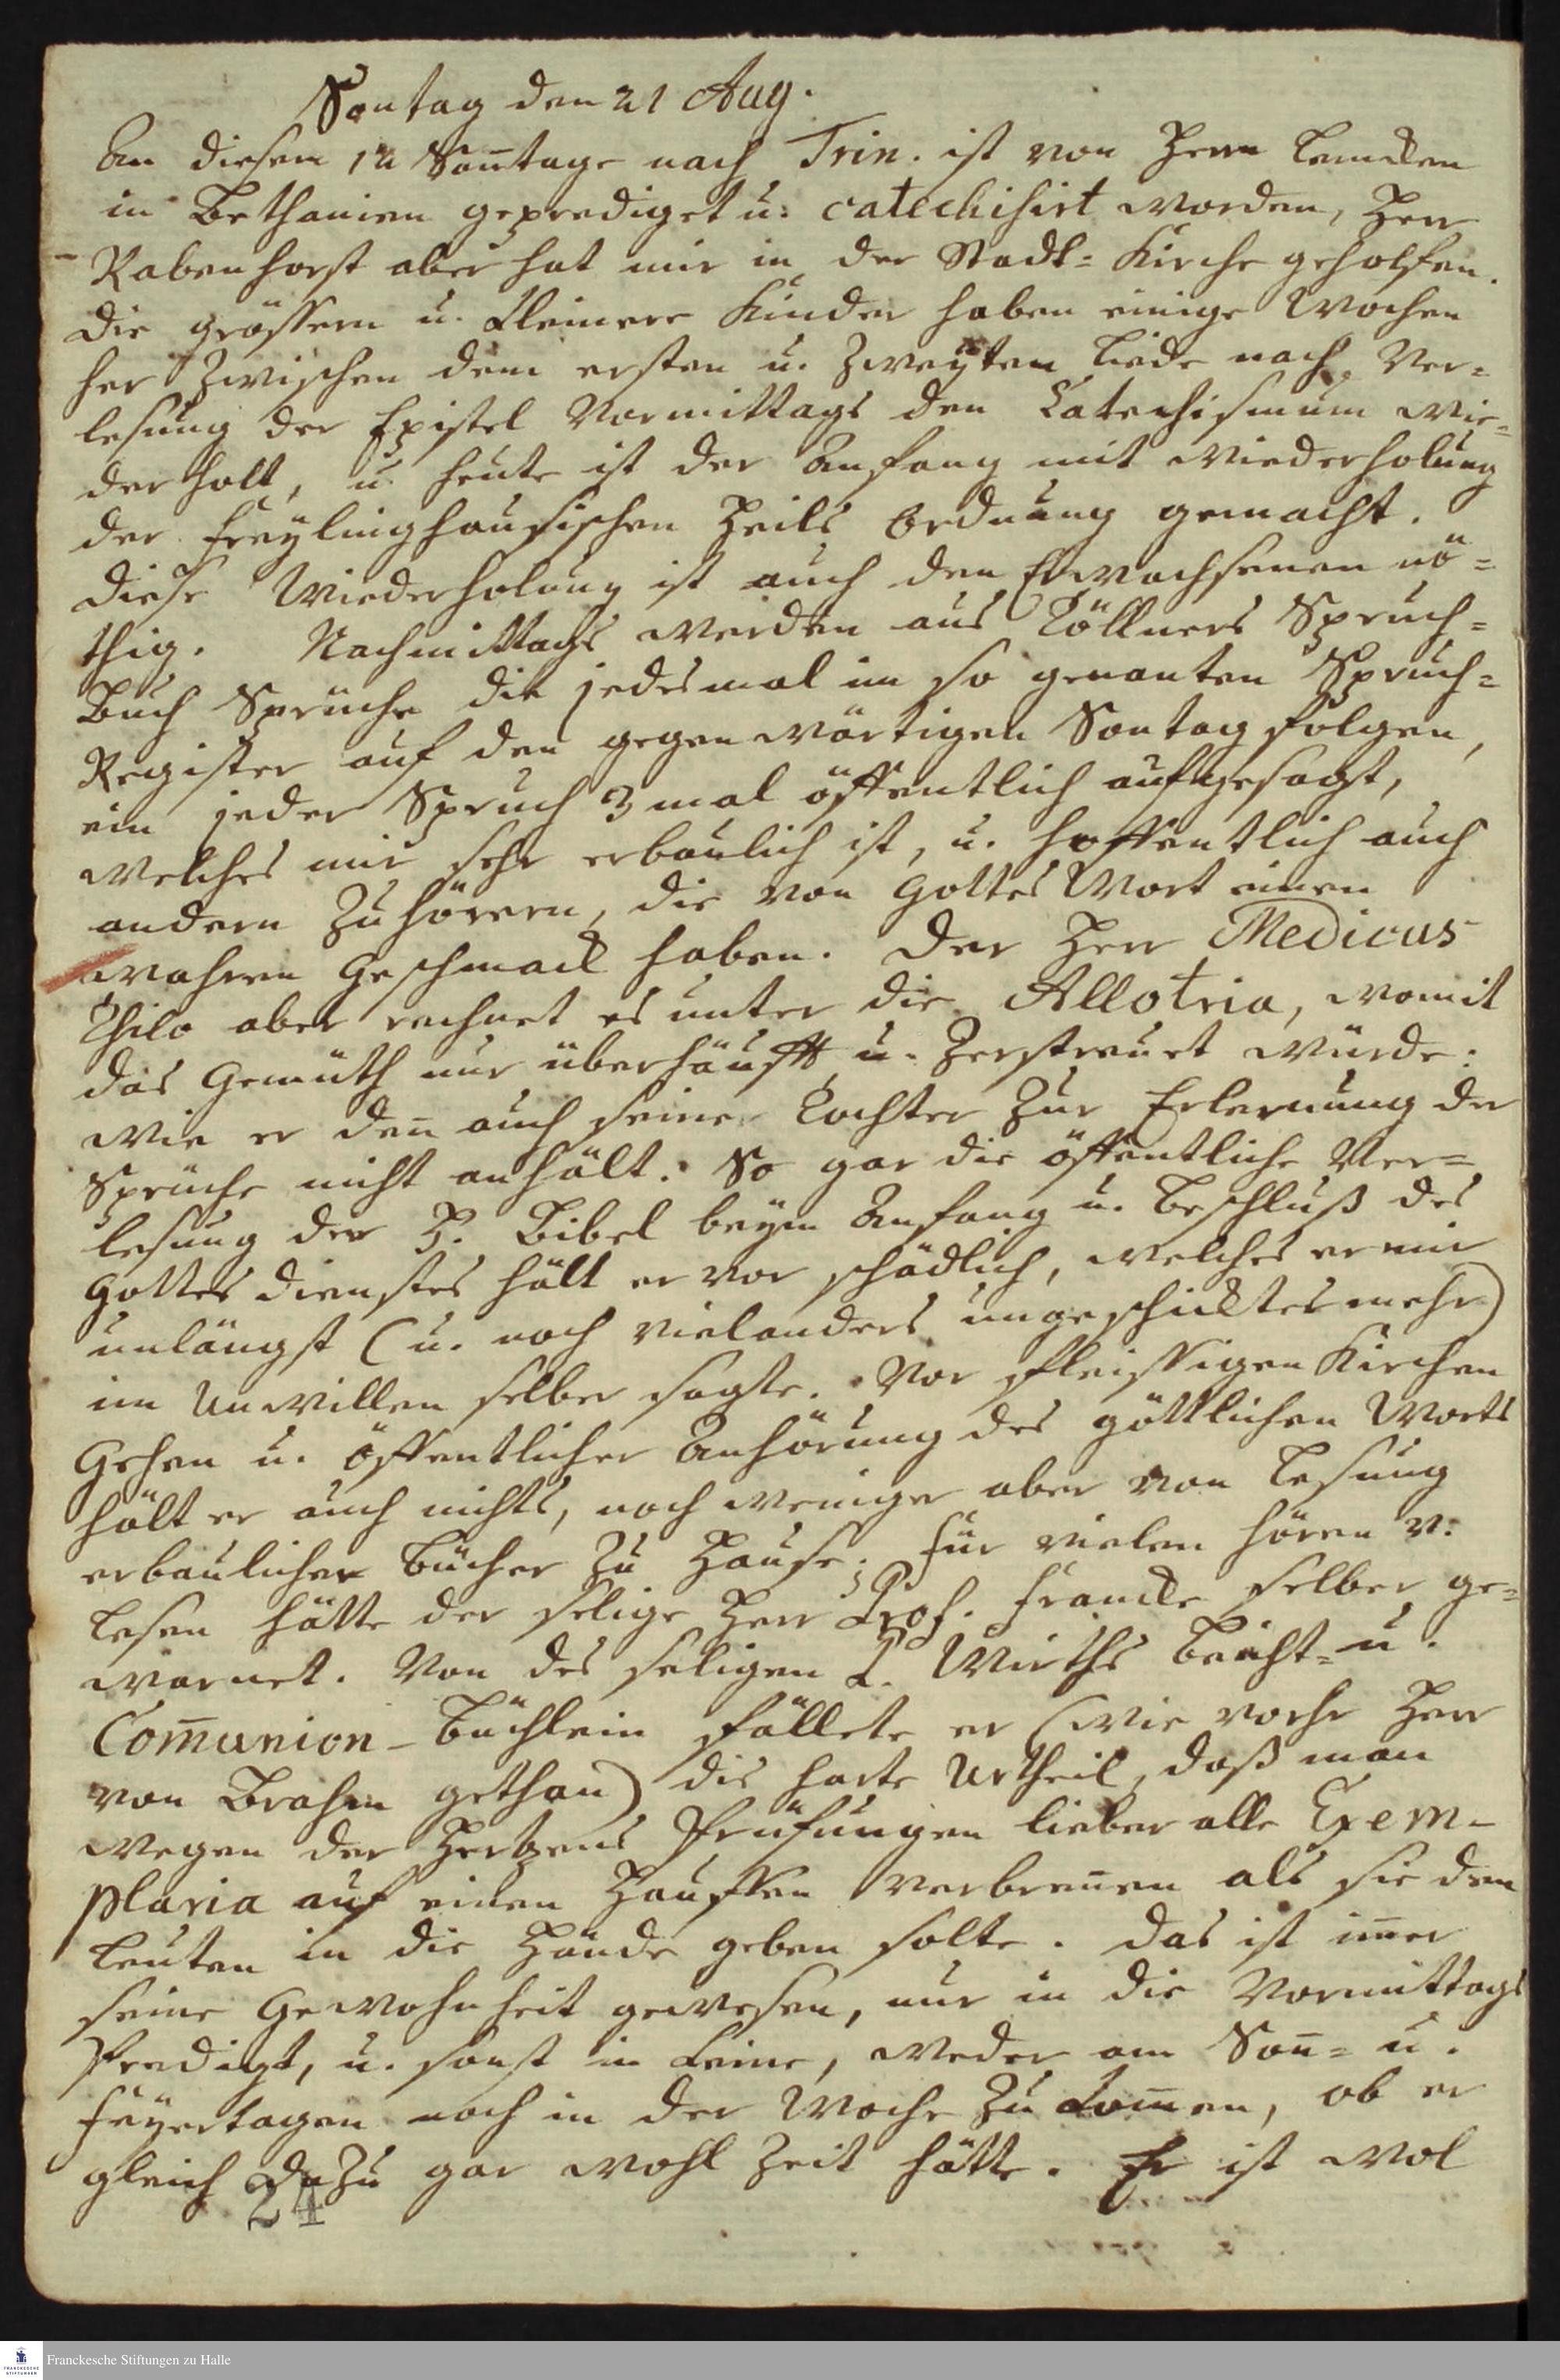 Sontag den 21 Aug.
An diesem 12 Son̄tage nach Trin. ist von Herrn Lemcken
in Bethanien geprediget u. catechisirt worden, Herr
Rabenhorst aber hat mir in der Stadt= Kirche geholfen.
Die grössern u. kleinere Kinder haben einige Wochen
her zwischen dem ersten u. zweyten Liede nach Ver=
lesung der Epistel Vormittags den Catechismum wie=
derholt, u. heute ist der Anfang mit Wiederholung
der Freylinghausischen Heils Ordnung gemacht.
Diese Wiederholung ist auch den Erwachsenen nö=
thig. Nachmittags werden aus Töllners Spruch=
Buch Sprüche die jedesmal im so genanten Spruch=
Register auf den gegenwärtigen Sontag folgen,
ein jeder Spruch 3 mal öffentlich aufgesagt,
welches mir sehr erbaulich ist, u. hoffentlich auch
andern Zuhörern, die von Gottes Wort einen
wahren Geschmack haben. Der Herr Medicus
Thilo aber rechnet es unter die Allotria, womit
das Gemüth nur überhäufft u. zerstreuet würde.
wie er den̄ auch seine Tochter zur Erlernung der
Sprüche nicht anhält. So gar die öffentliche Ver=
lesung der H. Bibel beym Anfang u. Beschluß des
Gottes dienstes hält er vor schädlich, welches er mir
unlängst (u. noch vielanders ungeschicktes mehr)
im Unwillen selber sagte. Vor fleissigen Kirchen
Gehen u. öffentlicher Anhörung des göttlichen Worts
hält er auch nichts, noch weniger aber von Lesung
erbaulicher Bücher zu Hause. Für vielen hören u.
lesen hätte der selige Herr Prof. Francke selber ge=
warnet. Von des seligen L. Wirths Beicht= u.
Com̄union- Büchlein fällete er (wie vorhr Herr
von Brahm gethan) dis harte Urtheil, daß man
wegen der Hertzens Prüfungen lieber alle Exem-
plaria auf einen Hauffen verbren̄en als sie den
Leuten in die Hände geben solte. Das ist im̄er
seine Gewohnheit gewesen, nur in die Vormittags
Predigt, u. sonst in keine, weder am Son̄= u.
Feyertagen noch in der Woche zu kom̄en, ob er
gleich dazu gar wohl Zeit hätte. Er ist wol
24
Franckesche Stiftungen zu Halle